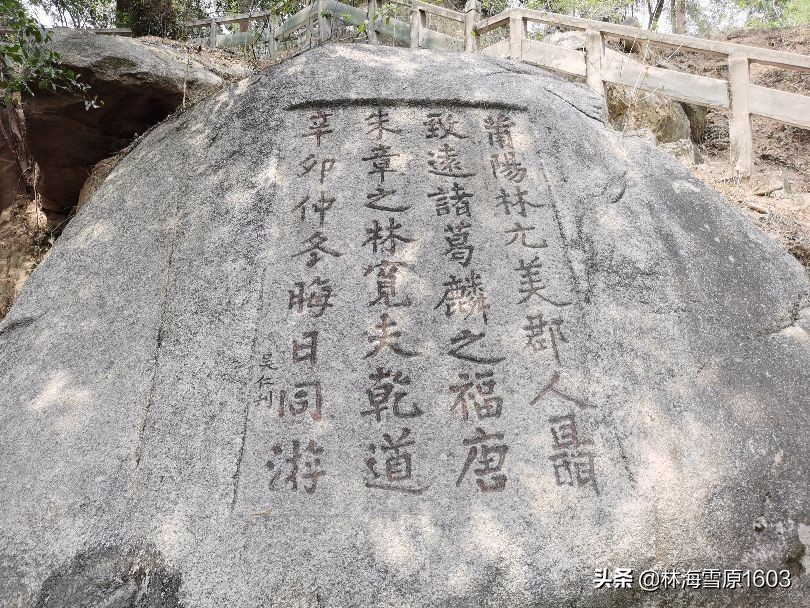 莆陽林元美郡人聶
致遠諸葛麟之福唐
朱章之林寬夫乾道
辛卯仲冬晦日同游
吴仁刊
头条 @林海雪原1603